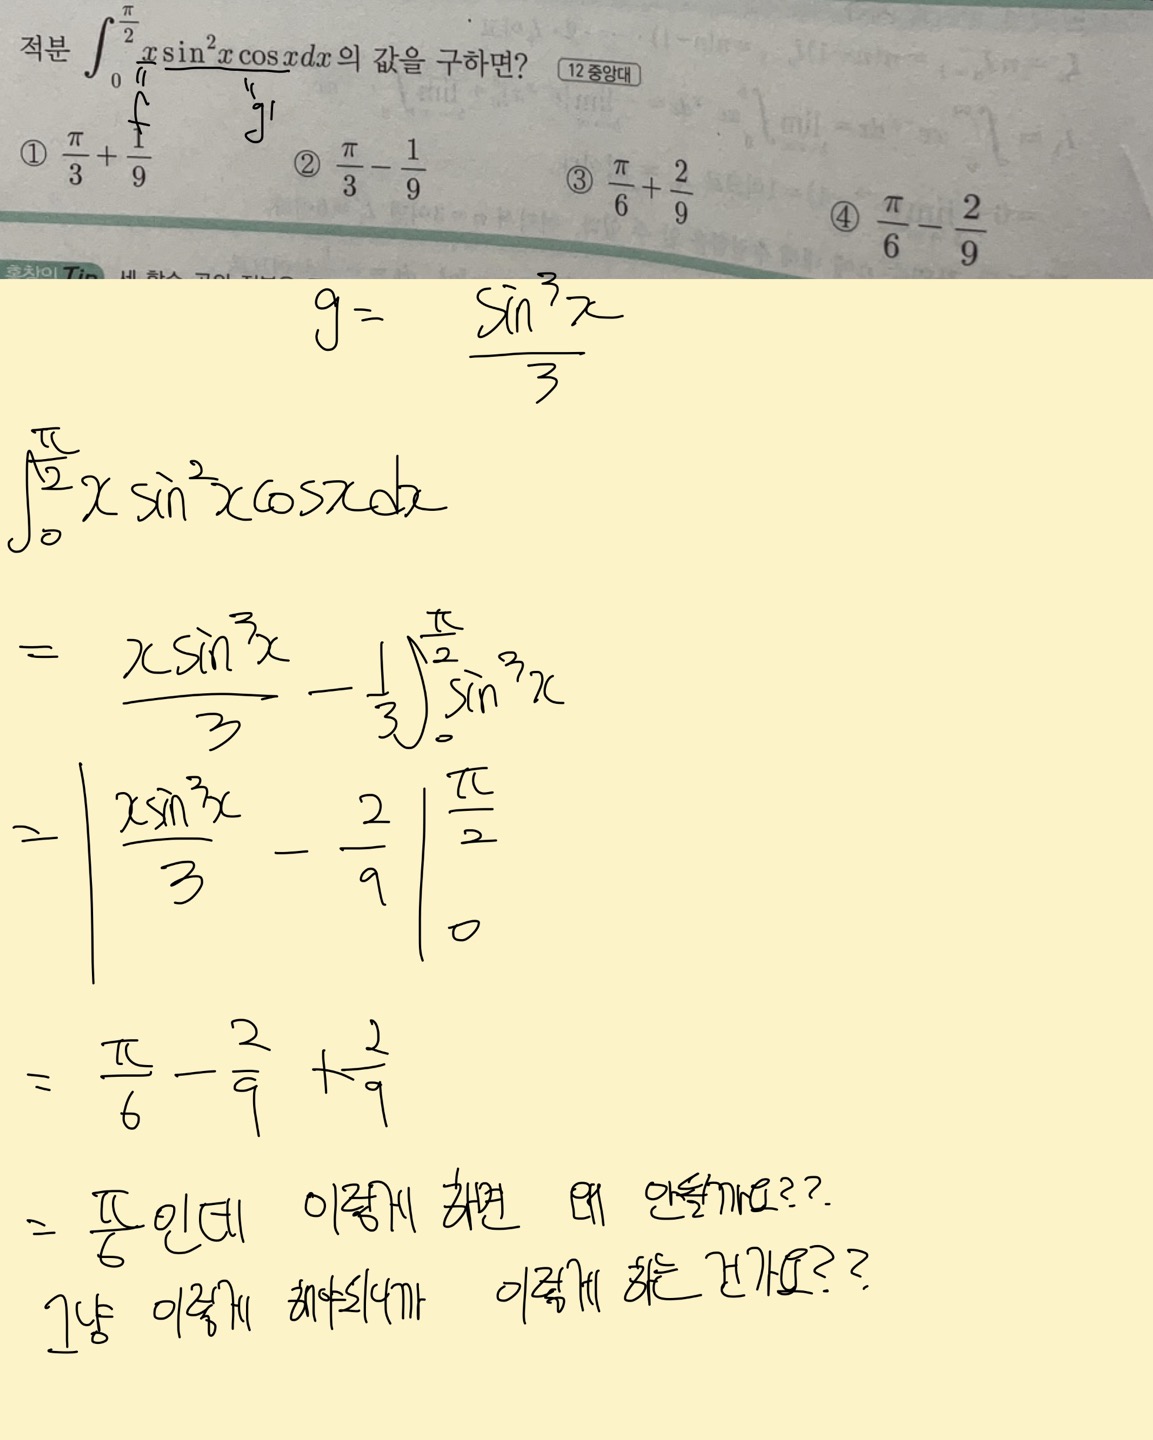 적분 ∫₀^{π/2} x sin²x cosx dx의 값을 구하면? 12 중앙대
f g'
① π/3 + 1/9 ② π/3 − 1/9 ③ π/6 + 2/9 ④ π/6 − 2/9
g = sin³x/3
∫₀^{π/2} x sin²x cosx dx
= x sin³x/3 − 1/3 ∫₀^{π/2} sin³x
= | x sin³x/3 − 2/9 |₀^{π/2}
= π/6 − 2/9 + 2/9
= π/6 인데 이렇게 하면 왜 안될까요??
그냥 이렇게 해야되니까 이렇게 하는 건가요??